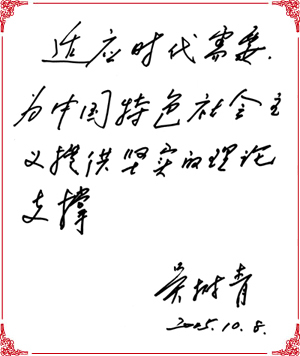 适应时代需要.
为中国特色社会主
义提供坚实的理论
支撑
吴树青
2005.10.8.